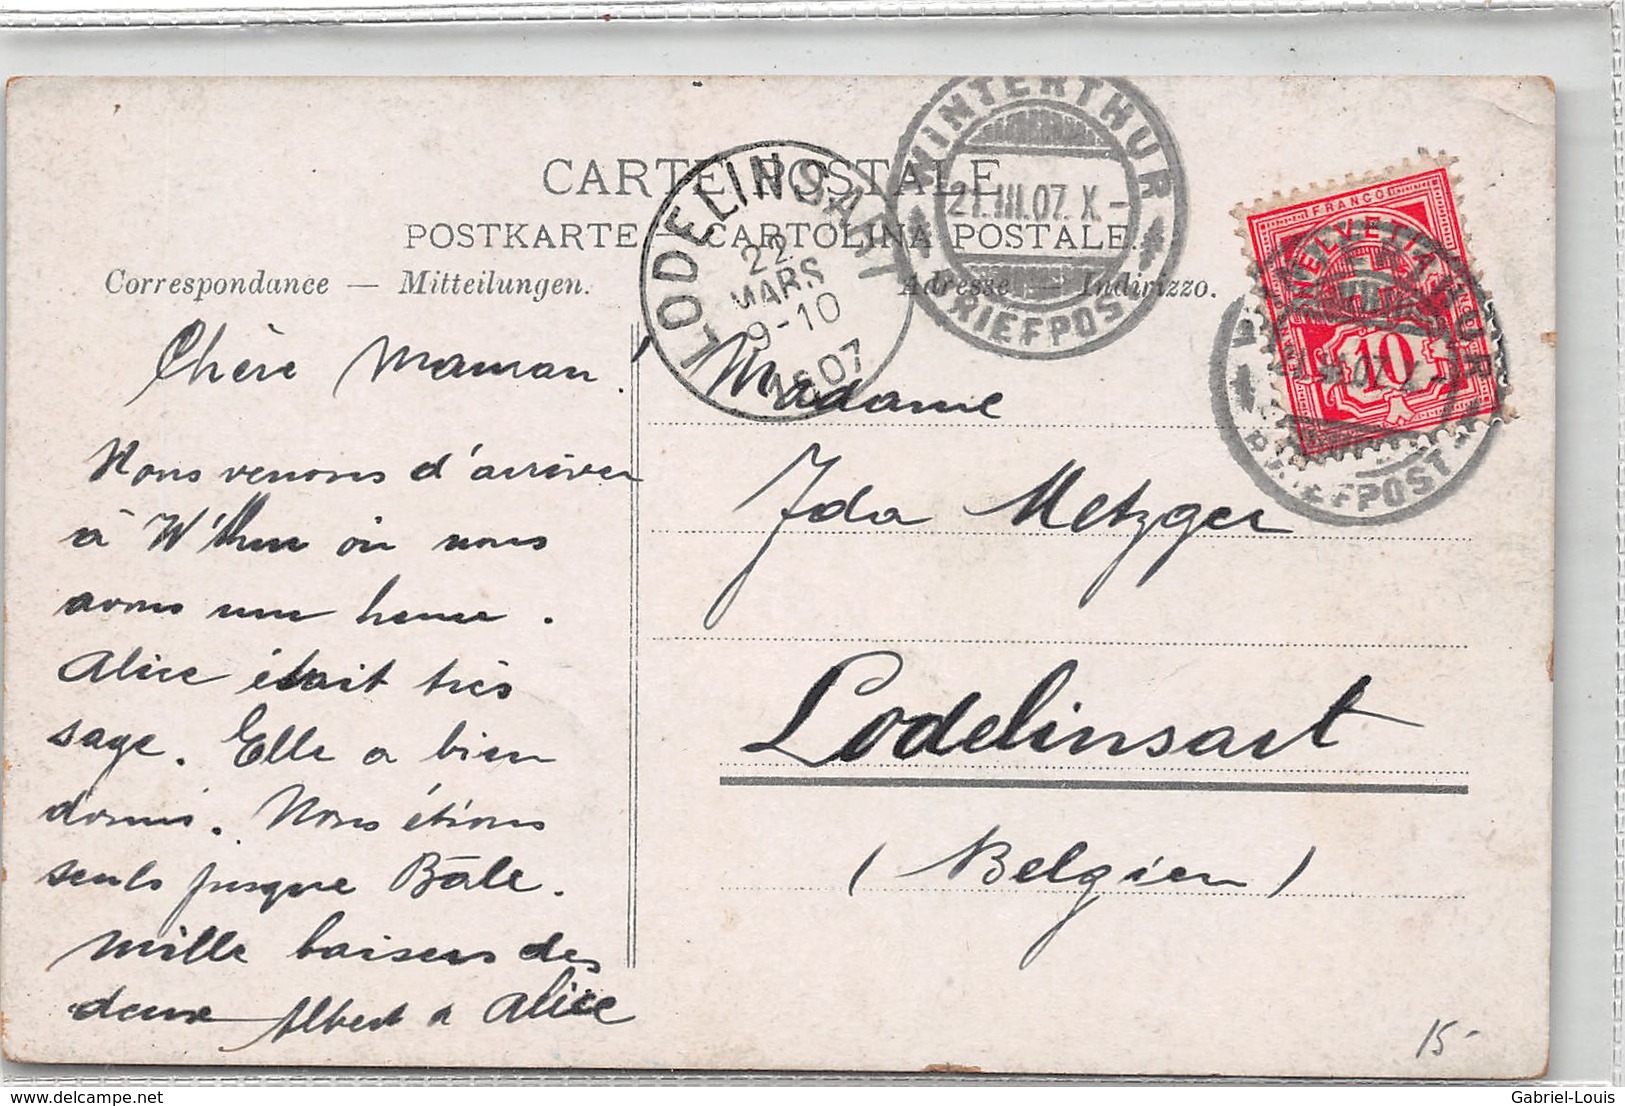 CARTE POSTALE
POSTKARTE CARTOLINA POSTALE
Correspondance — Mitteilungen.
Adresse — Indirizzo.
LODELINSART
22
MARS
9-10
1907
WINTERTHUR
21.III.07. X-
BRIEFPOST
FRANCO
HELVETIA
10
BRIEFPOST
Chère Maman!
Nous venons d'arriver
à W'thur où nous
avons une heure.
Alice était très
sage. Elle a bien
dormi. Nous étions
seuls jusque Bâle.
Mille baisers des
deux Albert & Alice
Madame
Ida Metzger
Lodelinsart
(Belgien)
15-
Gabriel-Louis